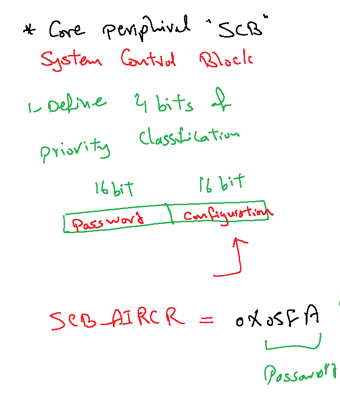 * Core peripheral "SCB"
System Control Block
1- Define 4 bits of
priority Classification
16 bit 16 bit
Password Configuration
SCB_AIRCR = 0X05FA
Password